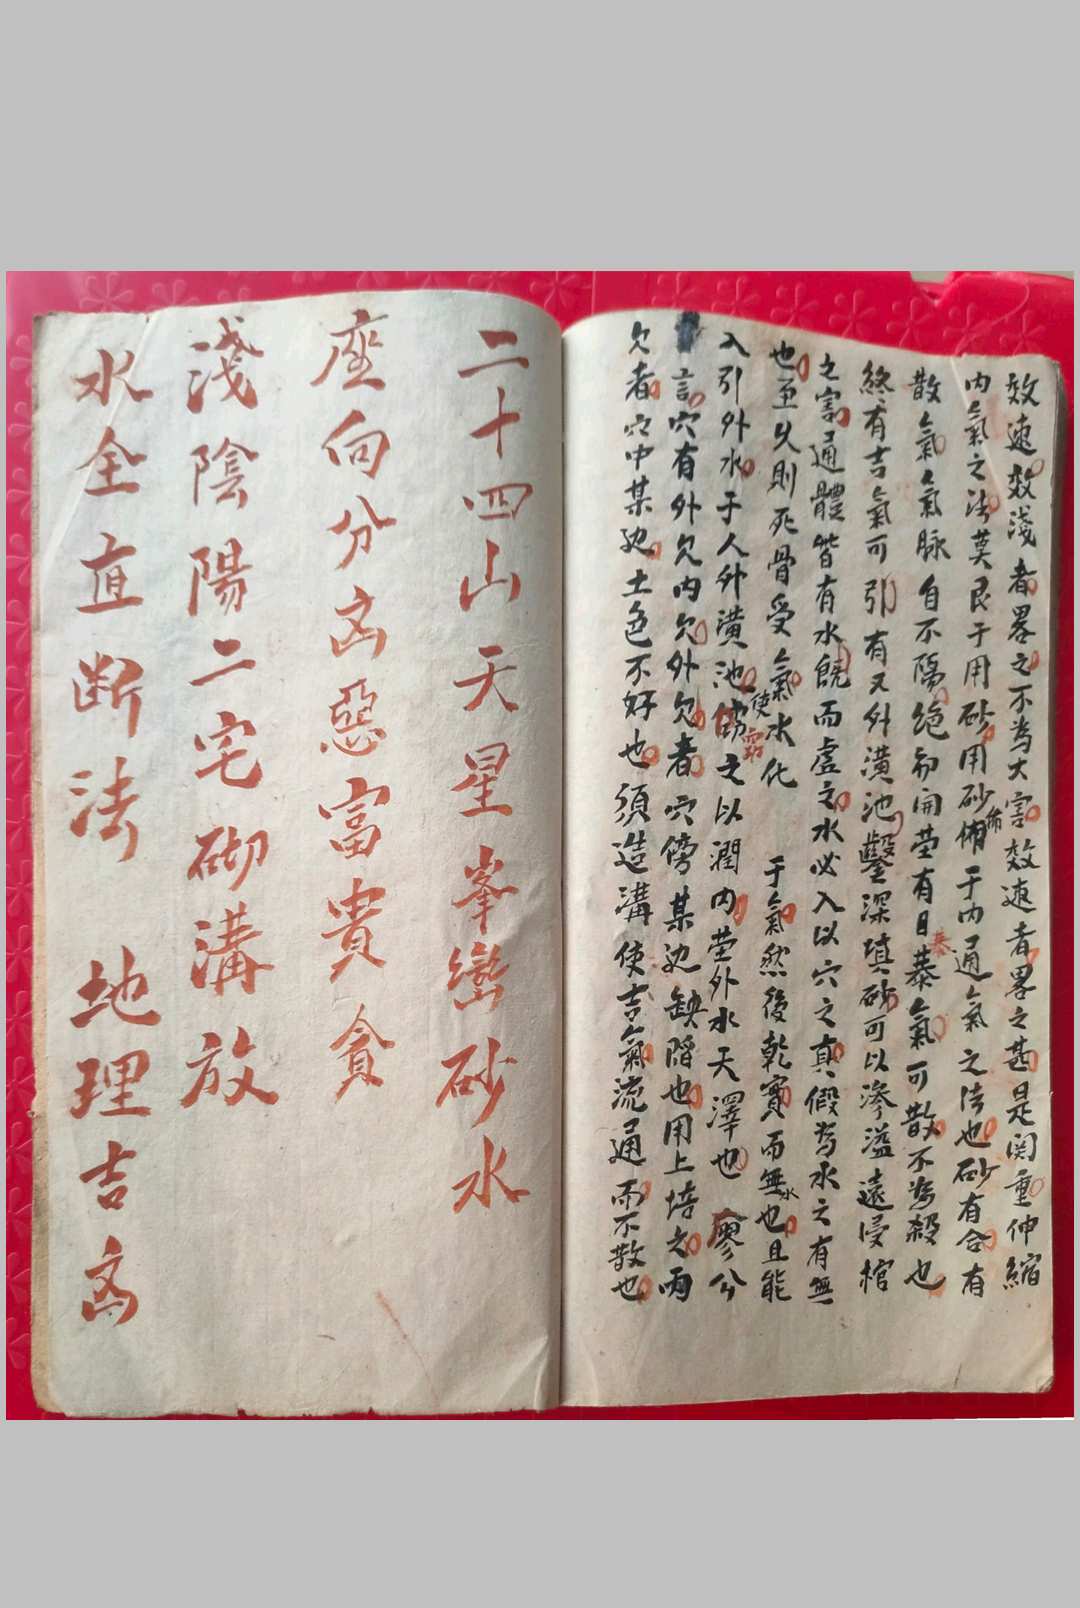 效速效淺者畧之不為大害效速者畧之甚是関重伸縮
內氣之法莫良于用砂用砂佈于內通氣之法也砂有合有
散氣氣脉自不隔絶初開茔有日暴氣可散不為殺也
終有吉氣可引有又外潢池鑿深填砂可以滲溢遠侵棺
之害通體皆有水饒而虛之水必入以穴之真假為水之有無
也至乆則死骨受氣使水化于氣然後乾實而無水也且能
入引外水于人外潢池竊之以潤內茔外水天澤也廖公
言穴有外欠內欠外欠者穴傍某边缺陷也用土培之兩
欠者穴中某边土色不好也須造溝使吉氣流通而不散也
二十四山天星峯巒砂水
座向分凶惡富貴貪
淺陰陽二宅砌溝放
水全直断法 地理吉凶